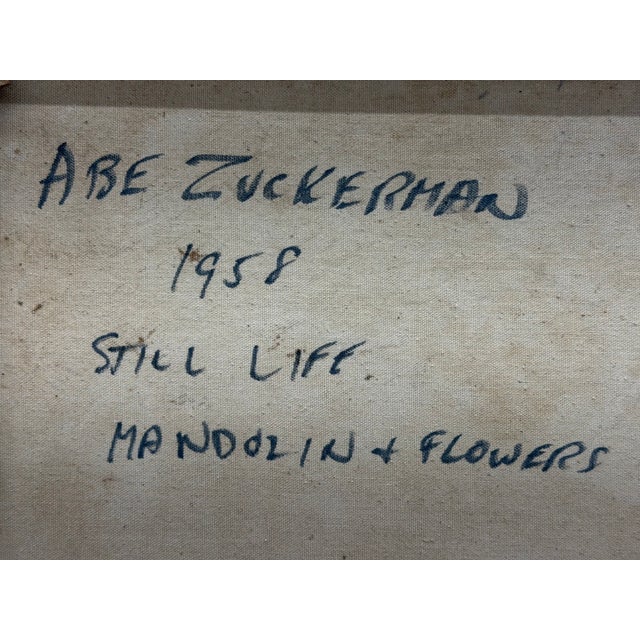 ABE ZUCKERMAN
1958
STILL LIFE
MANDOLIN + FLOWERS